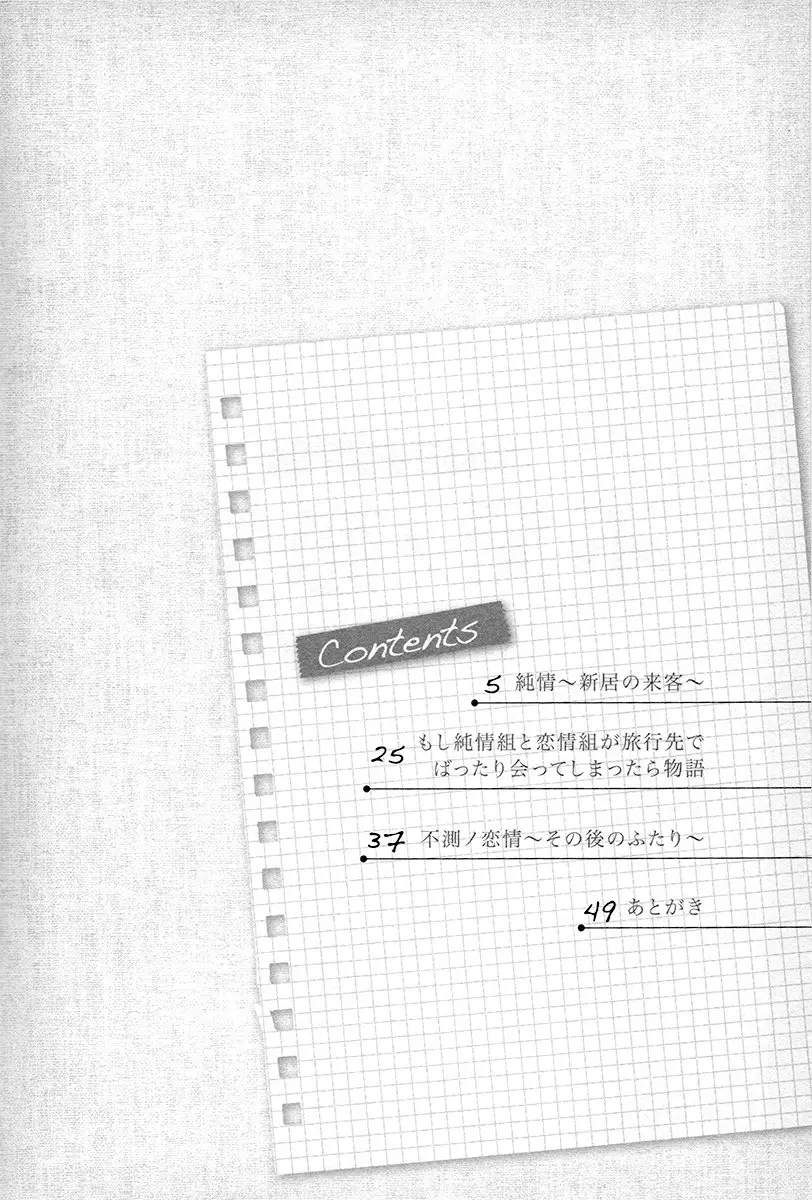 Contents
5 純情～新居の来客～
25 もし純情組と恋情組が旅行先で
ばったり会ってしまったら物語
37 不測ノ恋情～その後のふたり～
49 あとがき